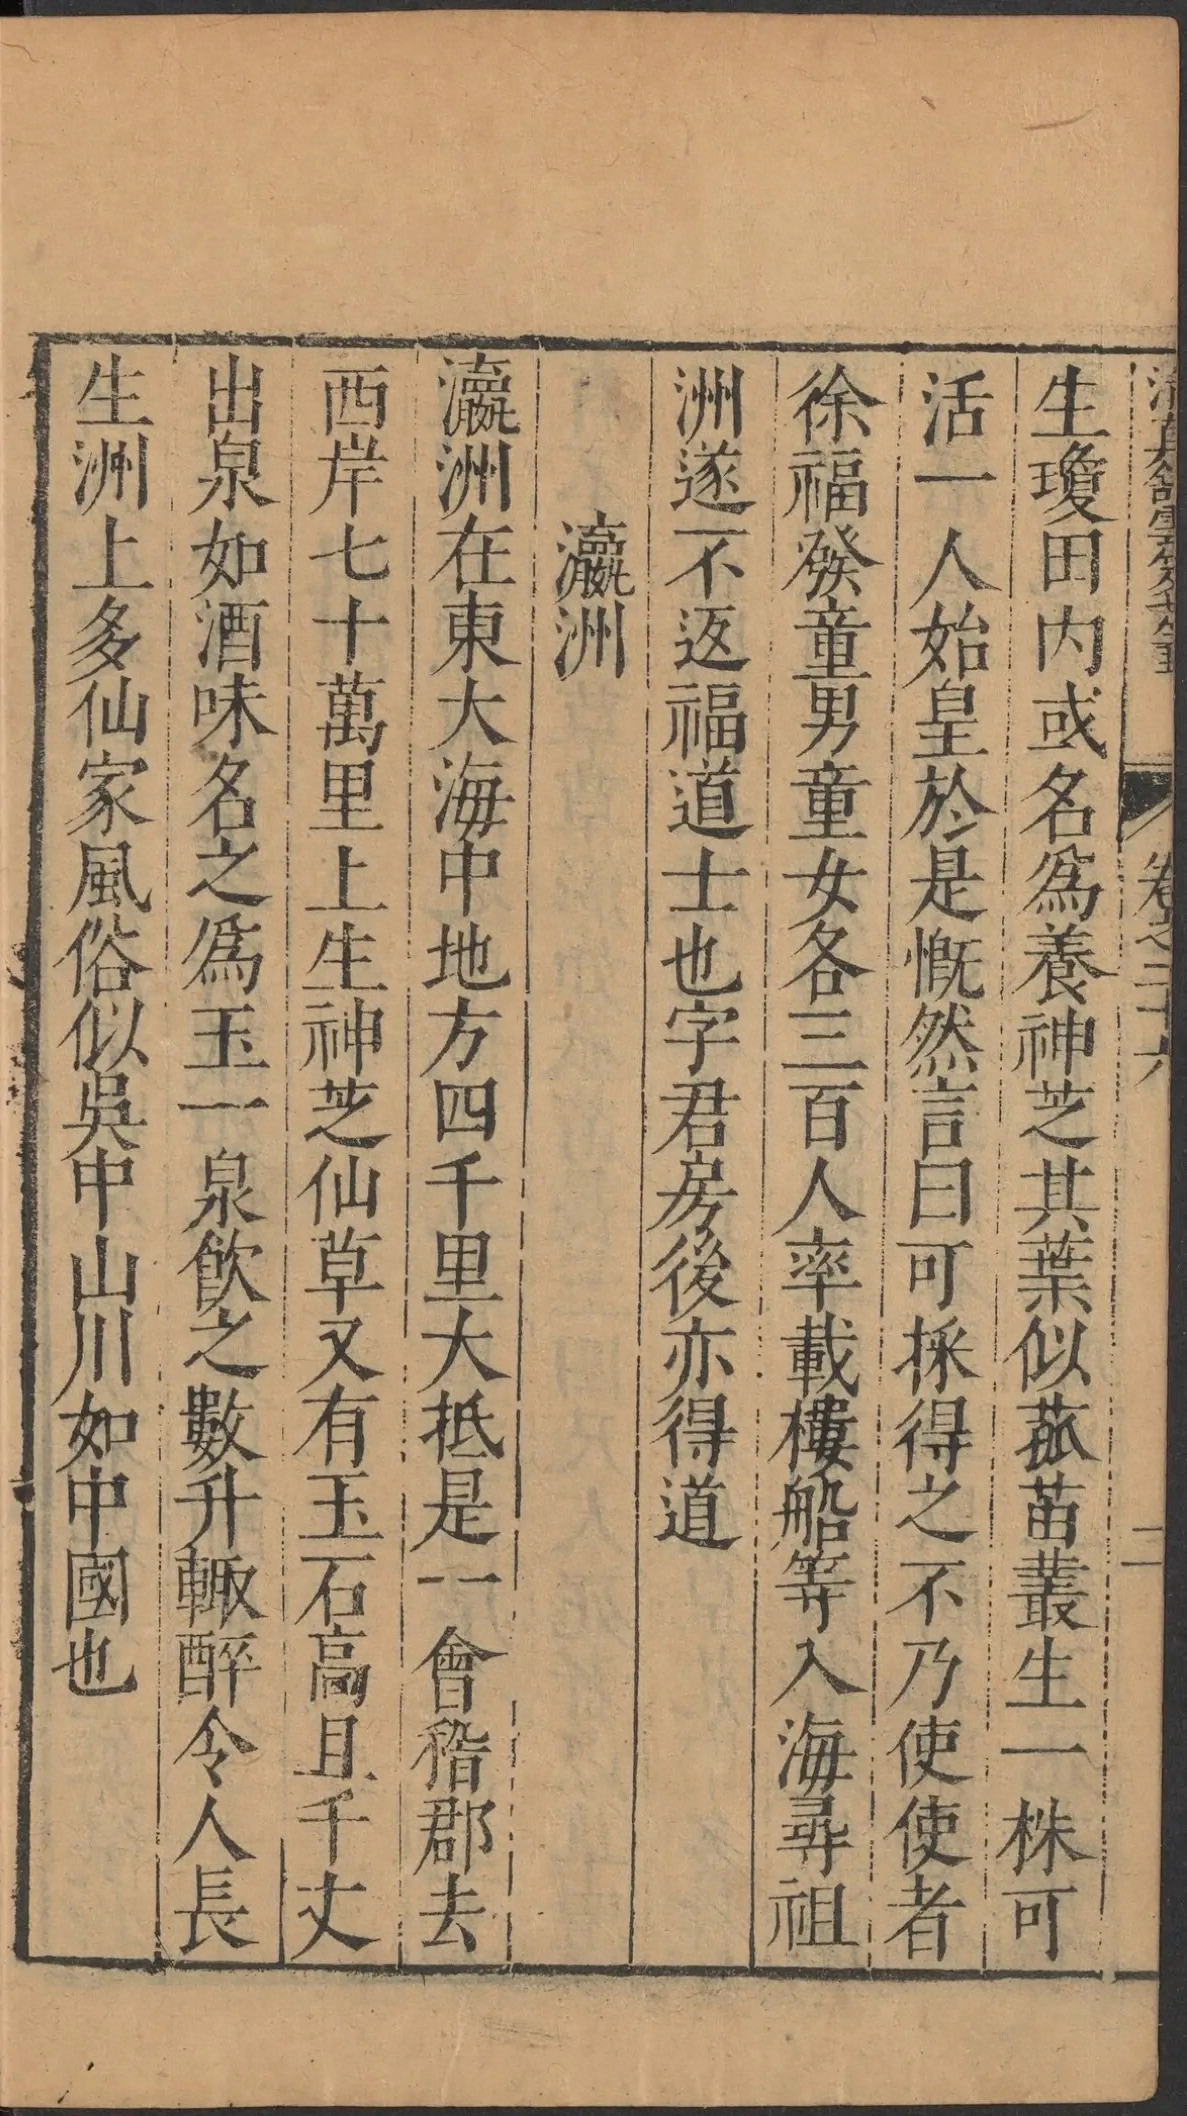 卷之二十六
二
生瓊田內或名爲養神芝其葉似菰苗叢生一株可
活一人始皇於是慨然言曰可採得之不乃使使者
徐福發童男童女各三百人率載樓船等入海尋祖
洲遂不返福道士也字君房後亦得道
瀛洲
瀛洲在東大海中地方四千里大抵是一會稽郡去
西岸七十萬里上生神芝仙草又有玉石高且千丈
出泉如酒味名之爲玉一泉飲之數升輙醉令人長
生洲上多仙家風俗似吳中山川如中國也